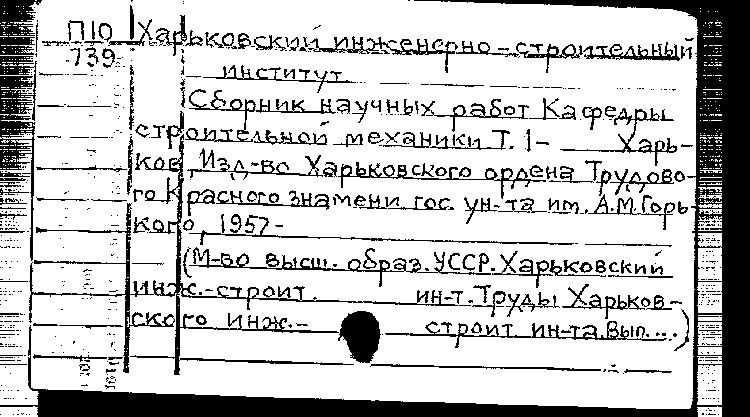 П10 Харьковский инженерно-строительный
739 институт
Сборник научных работ Кафедры
строительной механики Т. 1- Харь-
ков, Изд-во Харьковского ордена Трудово-
го Красного знамени гос. ун-та им. А.М.Горь-
кого, 1957-
(М-во высш. образ. УССР. Харьковский
инж.-строит. ин-т. Труды Харьков-
ского инж.- строит ин-та. Вып....)